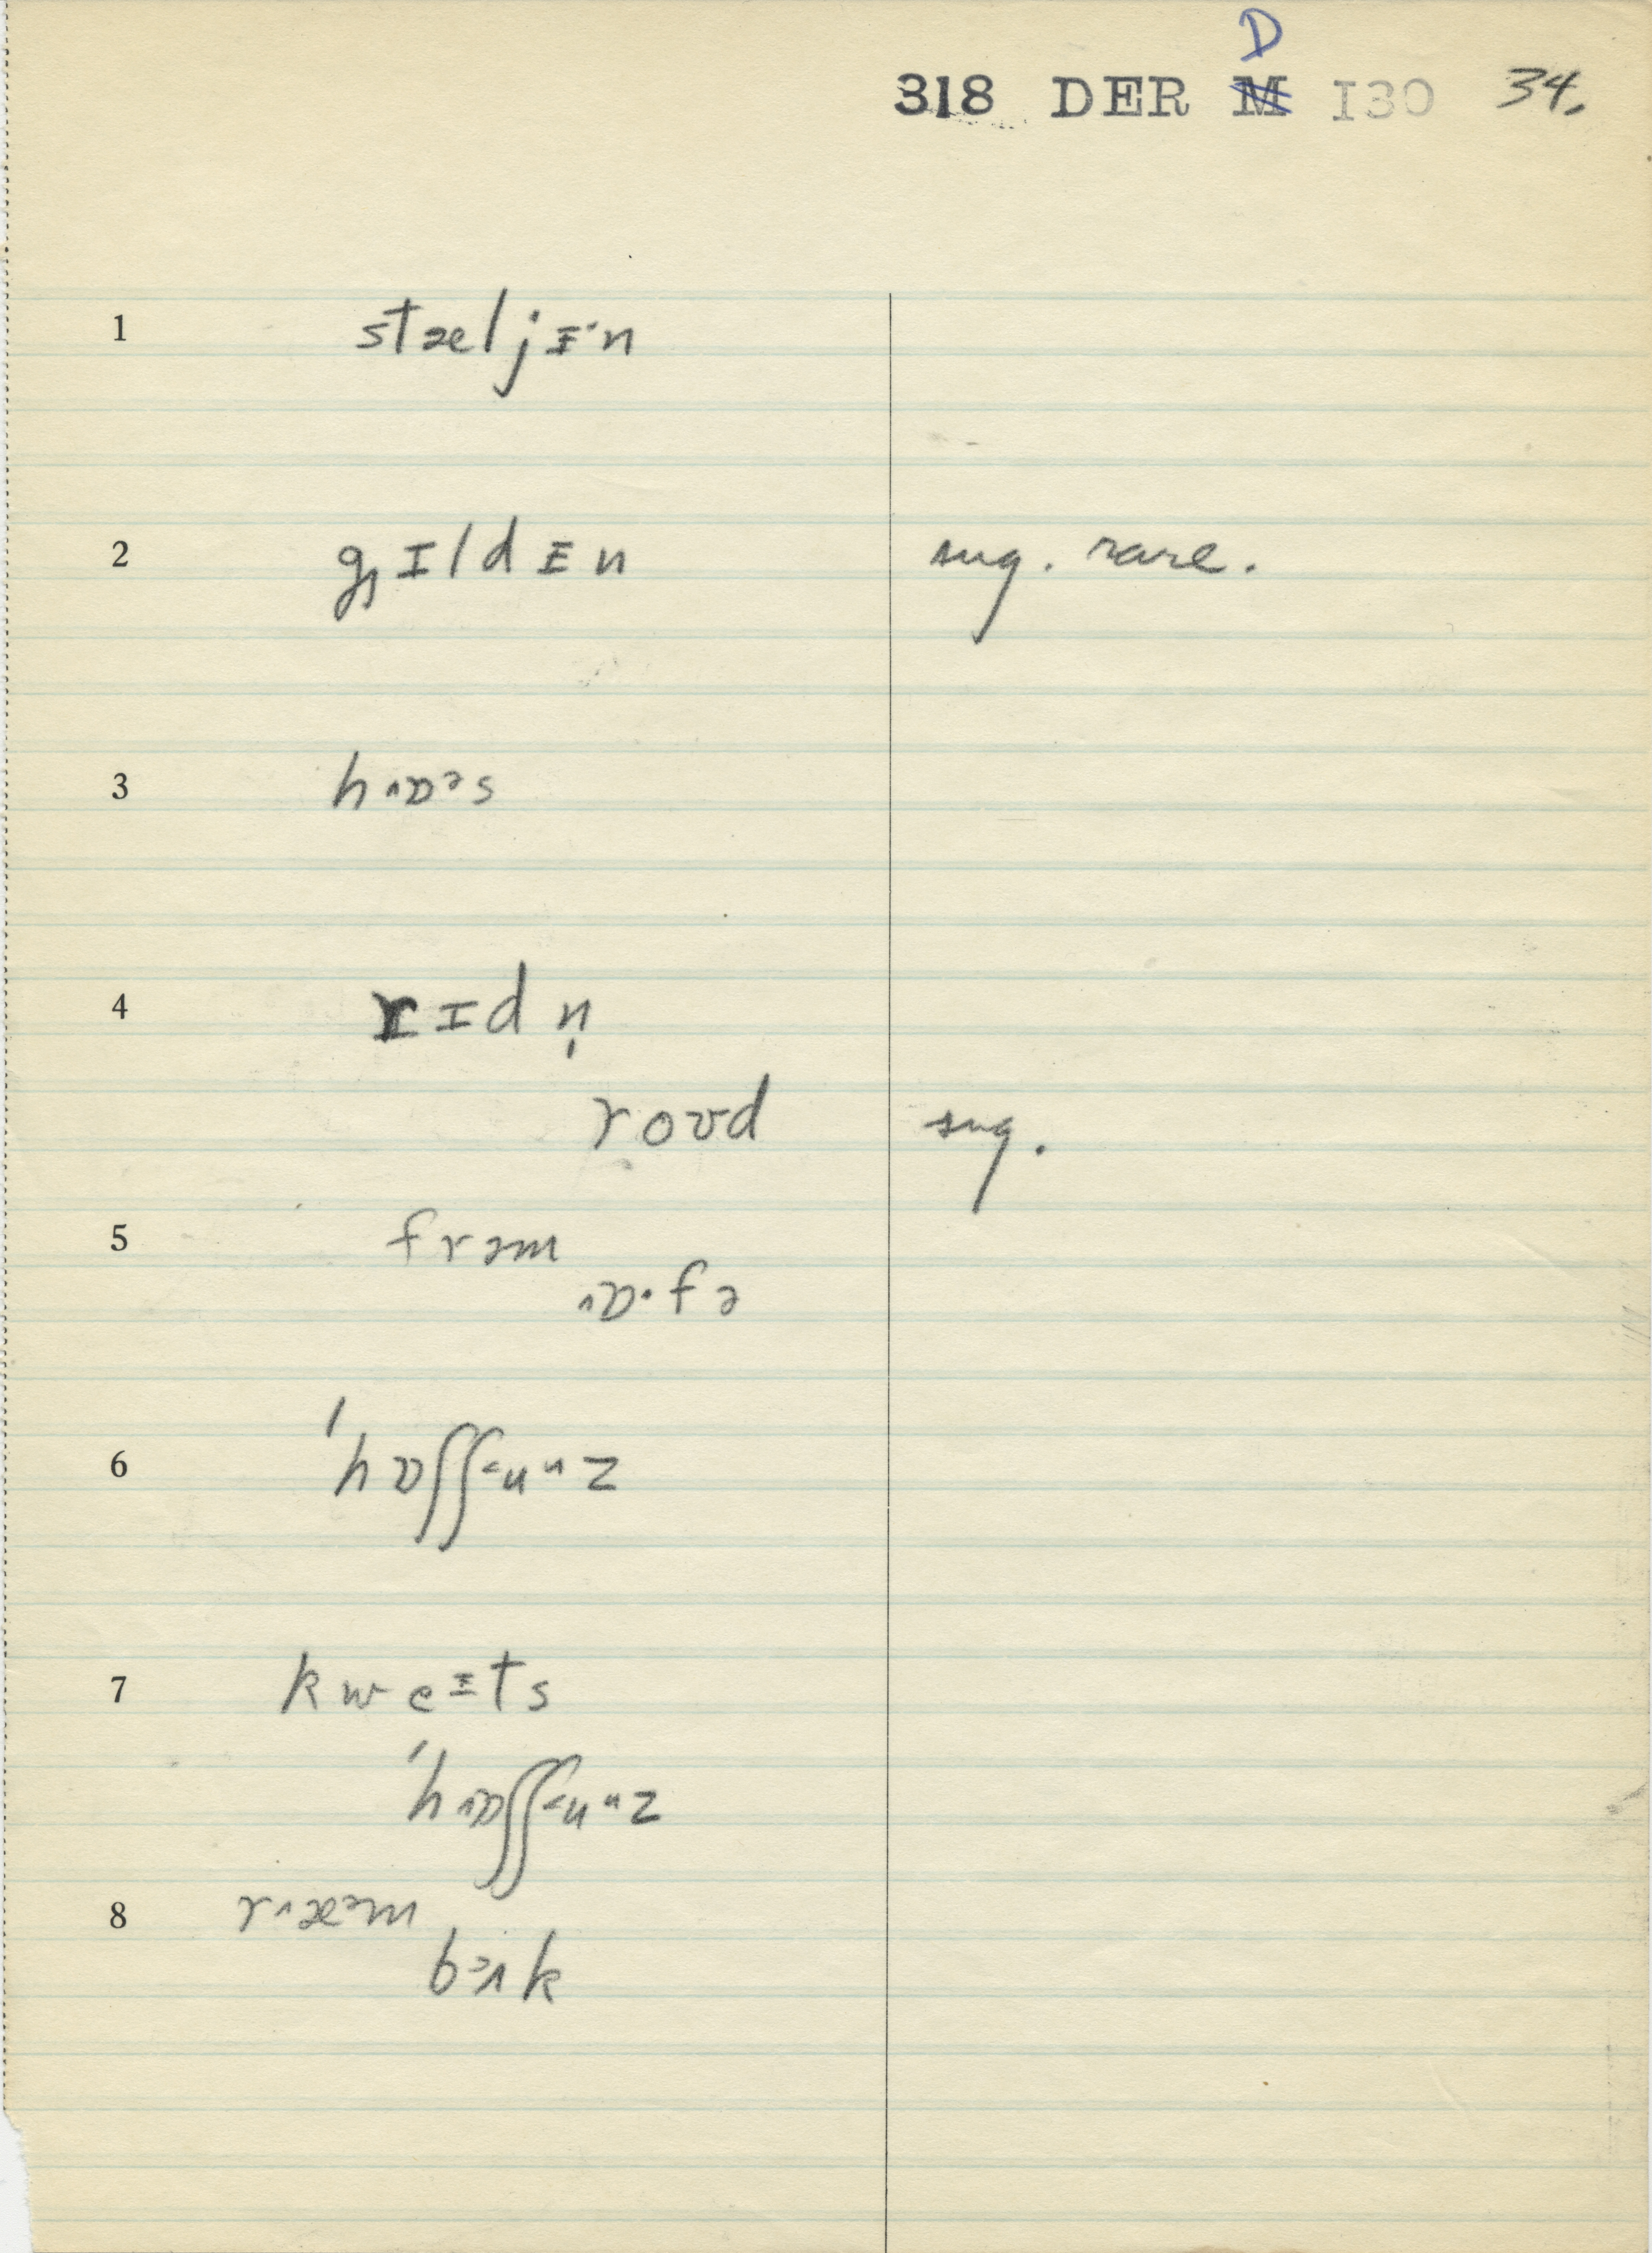 318 DER D M I30 34.
1 stæljɪ·n
2 g̡ɪldɪn sug. rare.
3 hɒᵊs
4 rɪdn̩
roʊd sug.
5 frəm
ɒ·fə
6 'hɒʃʃ
7 kweɪts
'hɒʃʃ
8 ræᵊm
bək